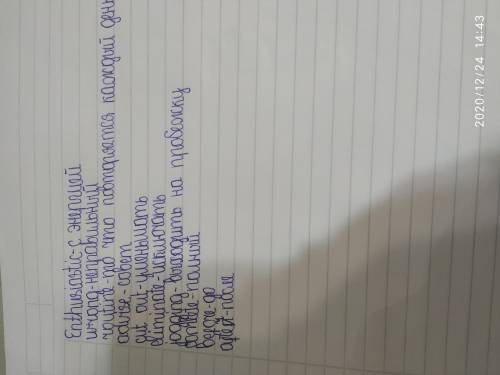 Enthusiastic-с энергией
wrong-неправильный
routine-то что повторяется каждый день
advise-совет
cut out-уменьшать
eliminate-исключать
jogging-выходить на пробежку
полный
before-до
after-после
2020/12/24 14:43